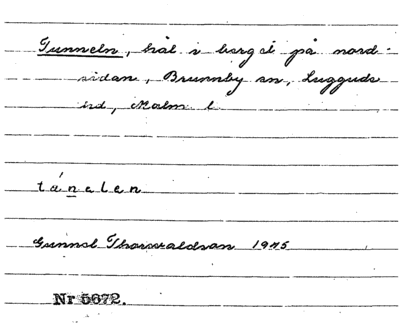 Tunneln, hål i berget på nord-
sidan, Brunnby sn, Luggude
hd, Malm l
tánelen
Gunnel Thorwaldson 1975
Nr 5672.